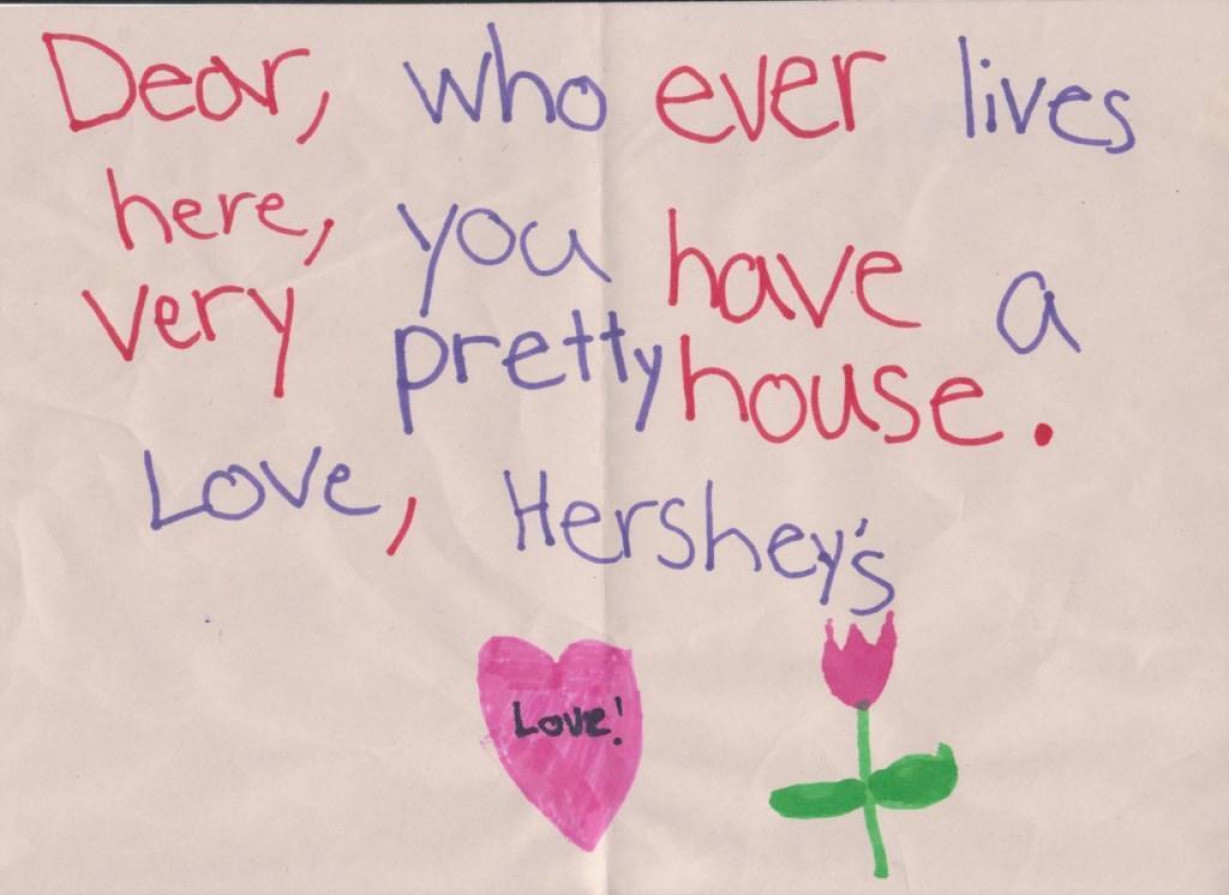 Dear, who ever lives
here, you have a
very pretty house.
Love, Hershey's
Love!